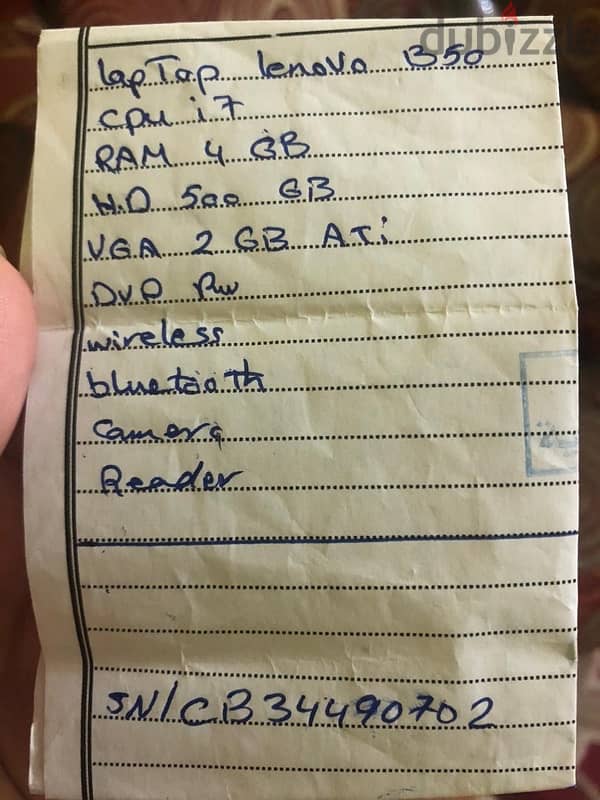 dubizzle
lapTop lenovo B50
cpu i7
RAM 4 GB
H.D 500 GB
VGA 2 GB ATi
DVD Rw
wireless
bluetooth
Camera
Reader
SN/CB34490702